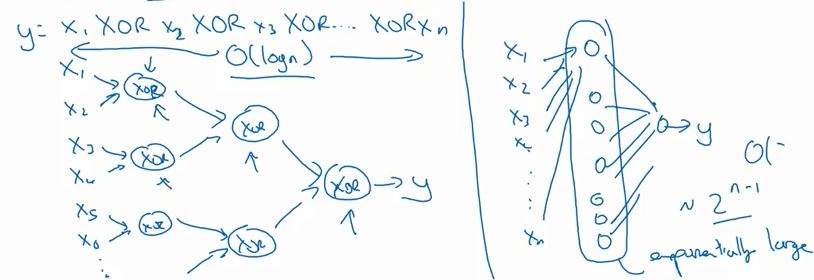 y = x₁ XOR x₂ XOR x₃ XOR .... XOR xₙ
O(log n)
x₁
x₂
XOR
XOR
x₃
x₄
XOR
XOR → y
x₅
x₆
XOR
XOR
x₁
x₂
x₃
x₄
xₙ
y
O(-
~ 2ⁿ⁻¹
exponentially large